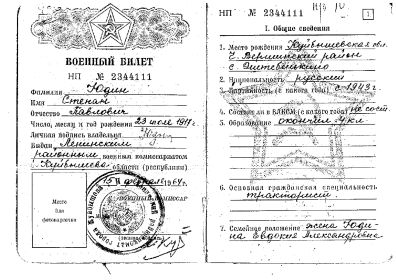 ВОЕННЫЙ БИЛЕТ
НП № 2344111
Фамилия Юдин
Имя Степан
Отчество Павлович
Число, месяц и год рождения 23 июля 1917 г.
Личная подпись владельца
Выдан Ленинским
районным военным комиссариатом
г. Куйбышева области (республики)
февраля 1964 г.
ВОЕННЫЙ КОМИССАР
Место
для
фотокарточки
НП № 2344111
1
I. Общие сведения
1. Место рождения Куйбышевская обл.
Ч. Вершинский район
с.
2. Национальность русский
3. Партийность (с какого года) с 1943 г.
4. Состоит ли в ВЛКСМ (с какого года) не сост.
5. Образование окончил 4 кл.
6. Основная гражданская специальность
тракторист
7. Семейное положение жена Юди-
на Евдокия Александровна